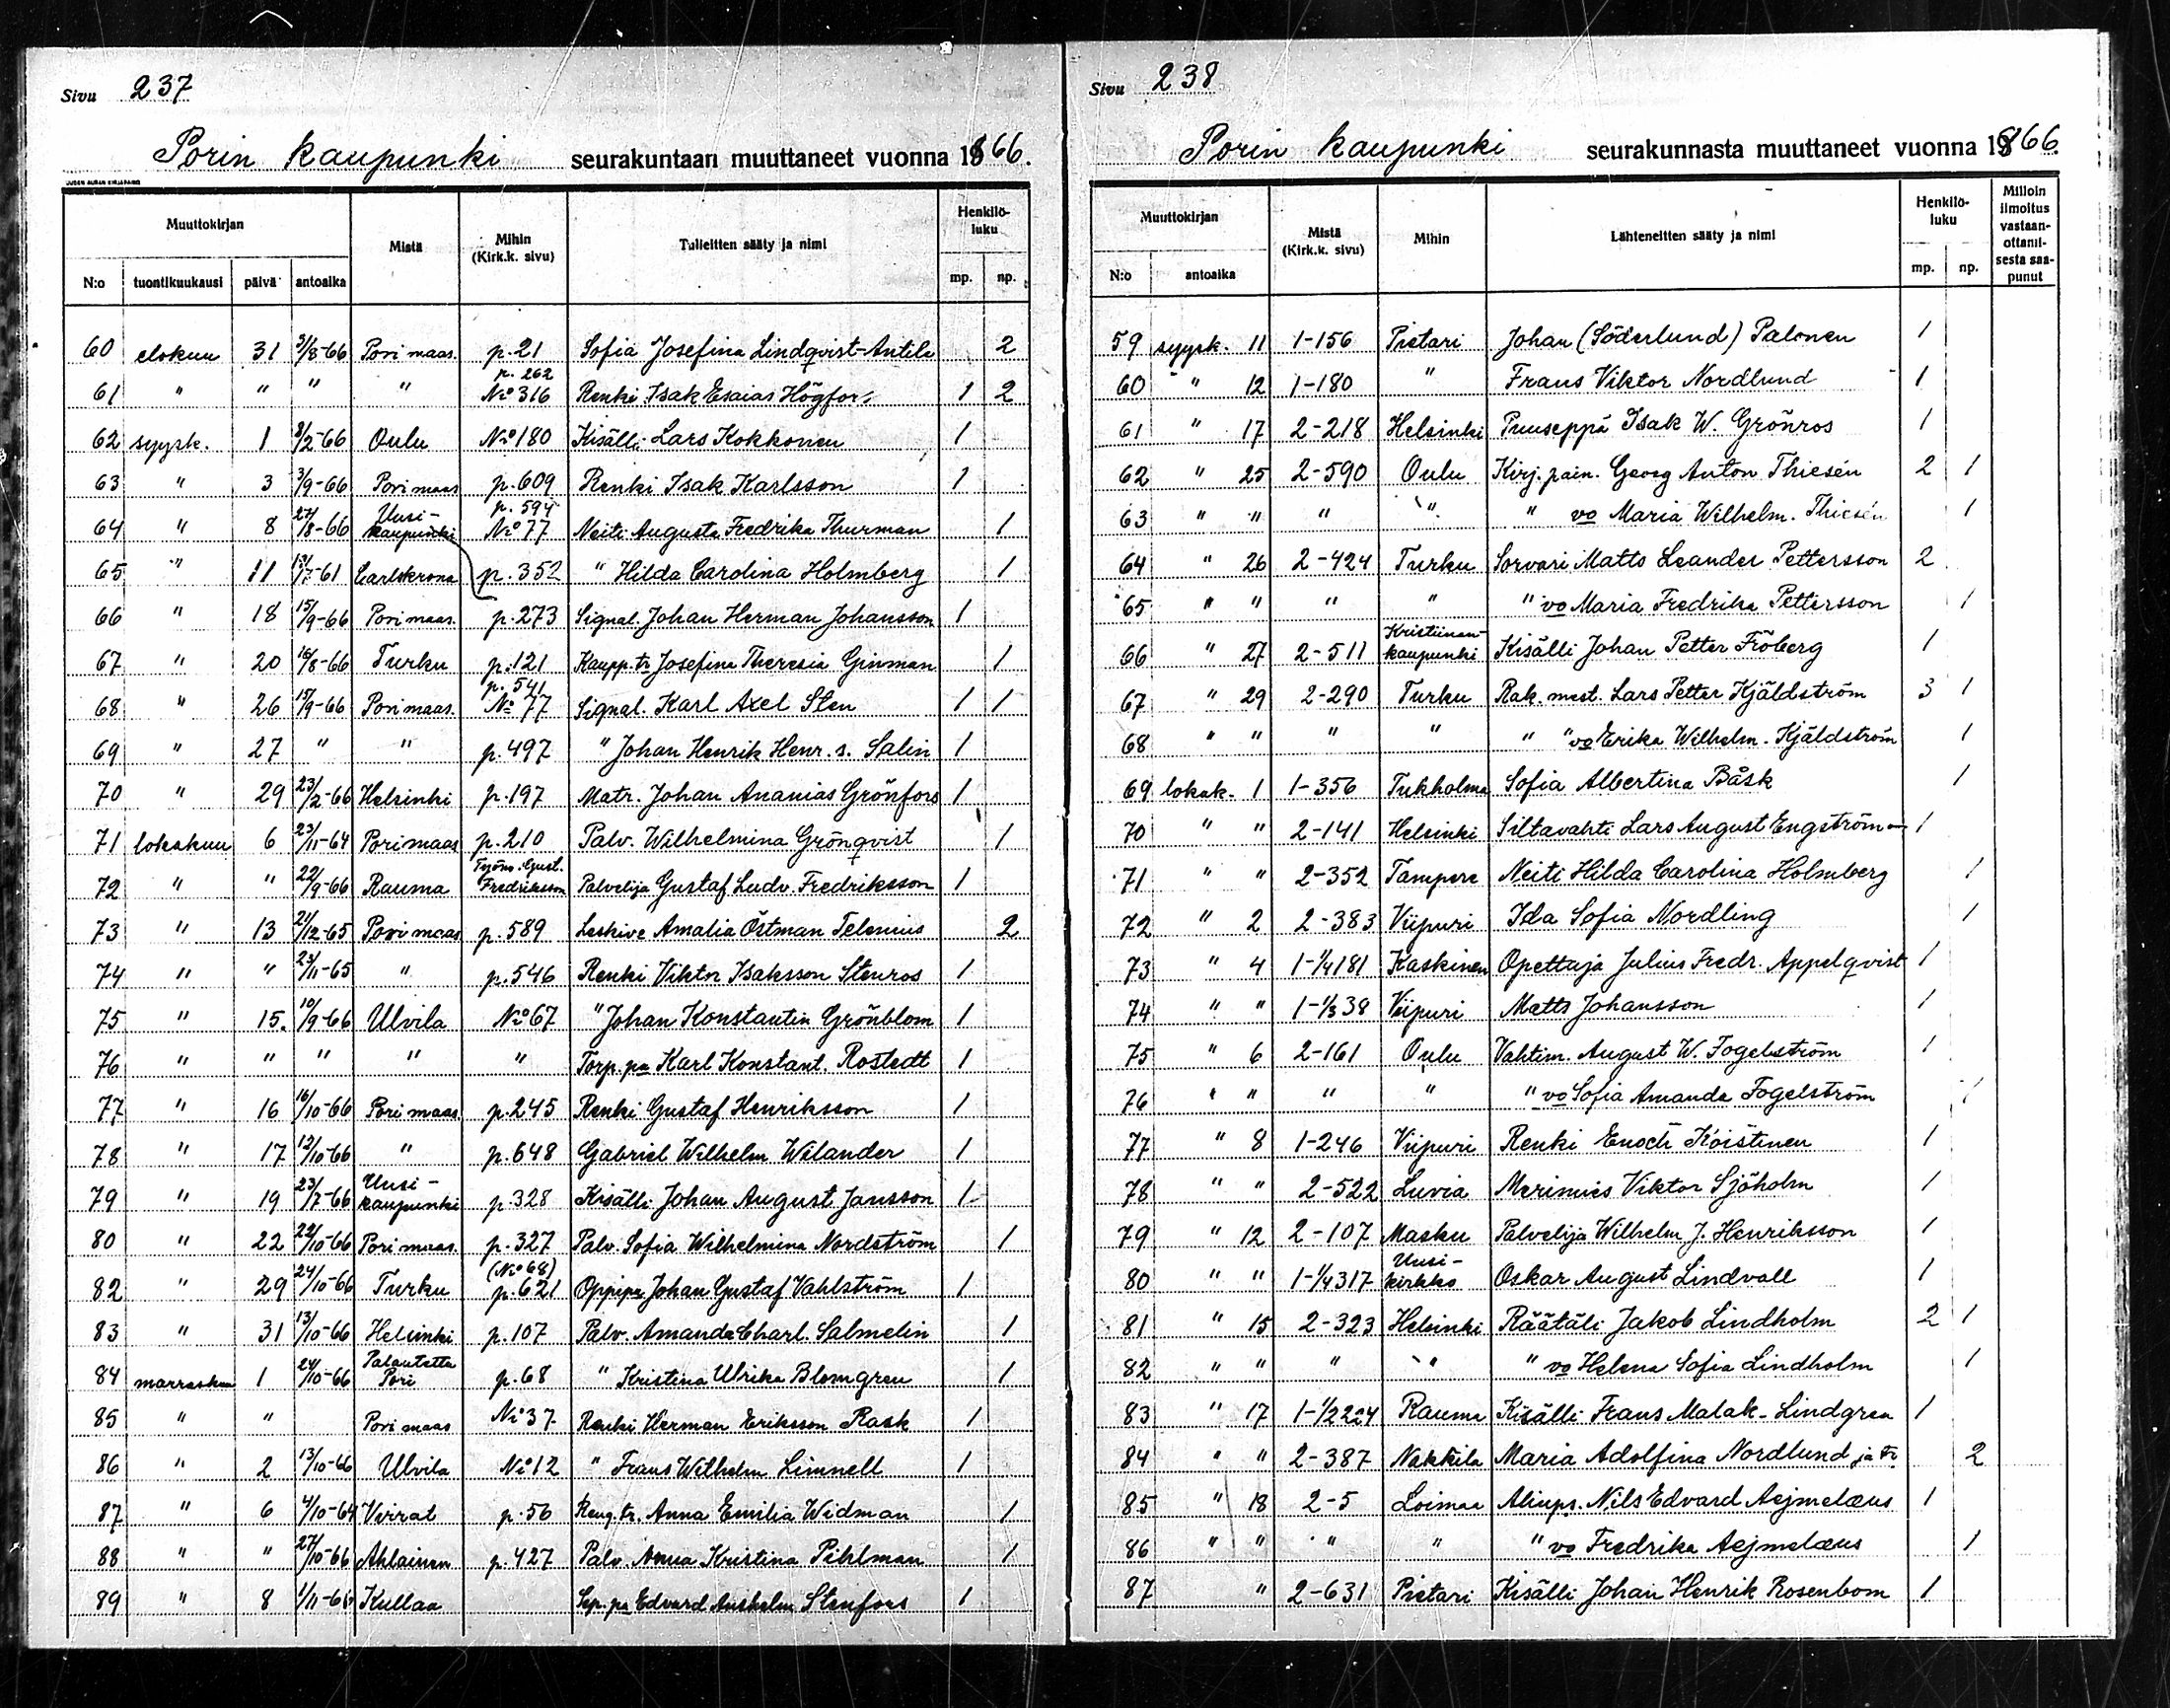 Sivu 237
Porin kaupunki seurakuntaan muuttaneet vuonna 1866.
UUDEN AURAN KIRJAPAINO
Muuttokirjan Mistä Mihin (Kirk.k. sivu) Tulleitten sääty ja nimi Henkilö-luku
N:o tuontikuukausi päivä antoaika mp. np.
60 elokuu 31 3/8-66 Pori maas. p. 21 Sofia Josefina Lindqvist-Antila 2
61 " " " " p. 262 No 316 Renki Isak Esaias Högfors 1 2
62 syysk. 1 8/2-66 Oulu No 180 Kisälli Lars Kokkonen 1
63 " 3 3/9-66 Pori maas p. 609 Renki Isak Karlsson 1
64 " 8 27/8-66 Uusi-kaupunki p. 594 No 77 Neiti Augusta Fredrika Thurman 1
65 " 11 13/7-61 Carlskrona p. 352 " Hilda Carolina Holmberg 1
66 " 18 15/9-66 Pori maas. p. 273 Signal. Johan Herman Johansson 1
67 " 20 16/8-66 Turku p. 121 Kaupp. tr Josefina Theresia Ginman 1
68 " 26 15/9-66 Pori maas. p. 541 No 77 Signal. Karl Axel Sten 1 1
69 " 27 " " p. 497 " Johan Henrik Henr. s. Salin 1
70 " 29 23/2-66 Helsinki p. 197 Matr. Johan Ananias Grönfors 1
71 lokakuu 6 23/11-64 Pori maas p. 210 Palv. Wilhelmina Grönqvist 1
72 " " 22/9-66 Rauma Työm. Gust. Fredriksson Palvelija Gustaf Ludv. Fredriksson 1
73 " 13 21/12-65 Pori maas p. 589 Leskive Amalia Östman Telenius 2
74 " " 23/11-65 " p. 546 Renki Viktor Isaksson Stenros 1
75 " 15. 10/9-66 Ulvila No 67 " Johan Konstantin Grönblom 1
76 " " " " " Torp. pa Karl Konstant. Rostedt 1
77 " 16 16/10-66 Pori maas p. 245 Renki Gustaf Henriksson 1
78 " 17 12/10-66 " p. 648 Gabriel Wilhelm Wilander 1
79 " 19 23/7-66 Uusi-kaupunki p. 328 Kisälli Johan August Jansson 1
80 " 22 22/10-66 Pori maas. p. 327 Palv. Sofia Wilhelmina Nordström 1
82 " 29 24/10-66 Turku (No 68) p. 621 Oppipa Johan Gustaf Vahlström 1
83 " 31 13/10-66 Helsinki p. 107 Palv. Amanda Charl. Salmelin 1
84 marraskuu 1 24/10-66 Palautettu Pori p. 68 " Kristina Ulrika Blomgren 1
85 " " Pori maas No 37 Renki Herman Eriksson Rask 1
86 " 2 13/10-66 Ulvila No 12 " Frans Wilhelm Limnell 1
87 " 6 4/10-64 Virrat p. 56 Reng. tr. Anna Emilia Widman 1
88 " " 27/10-66 Ahlainen p. 427 Palv. Anna Kristina Pihlman 1
89 " 8 1/11-66 Kullaa Sep. pa Edvard Anshelm Stenfors 1
Sivu 238
Porin kaupunki seurakunnasta muuttaneet vuonna 1866.
Muuttokirjan Mistä (Kirk.k. sivu) Mihin Lähteneitten sääty ja nimi Henkilö-luku Milloin ilmoitus vastaan-ottamisesta saa-punut
N:o antoaika mp. np.
59 syysk. 11 1-156 Pietari Johan (Söderlund) Palonen 1
60 " 12 1-180 " Frans Viktor Nordlund 1
61 " 17 2-218 Helsinki Puuseppä Isak W. Grönros 1
62 " 25 2-590 Oulu Kirj. pain. Georg Anton Thiesén 2 1
63 " " " " " vo Maria Wilhelm. Thiesén 1
64 " 26 2-424 Turku Sorvari Matts Leander Pettersson 2
65 " " " " " vo Maria Fredrika Pettersson 1
66 " 27 2-511 Kristiinan-kaupunki Kisälli Johan Petter Fröberg 1
67 " 29 2-290 Turku Rak. mest. Lars Petter Kjäldström 3 1
68 " " " " " vo Erika Wilhelm. Kjäldström 1
69 lokak. 1 1-356 Tukholma Sofia Albertina Båsk 1
70 " " 2-141 Helsinki Siltavahti Lars August Engström 1
71 " " 2-352 Tampere Neiti Hilda Carolina Holmberg 1
72 " 2 2-383 Viipuri Ida Sofia Nordling 1
73 " 4 1-1/4181 Kaskinen Opettaja Julius Fredr. Appelqvist 1
74 " " 1-1/3 38 Viipuri Matts Johansson 1
75 " 6 2-161 Oulu Vahtim. August W. Fogelström 1
76 " " " " " vo Sofia Amanda Fogelström 1
77 " 8 1-246 Viipuri Renki Enoch Koistinen 1
78 " " 2-522 Luvia Merimies Viktor Sjöholm 1
79 " 12 2-107 Masku Palvelija Wilhelm J. Henriksson 1
80 " " 1-1/4317 Uusi-kirkko Oskar August Lindvall 1
81 " 15 2-323 Helsinki Räätäli Jakob Lindholm 2 1
82 " " " " " vo Helena Sofia Lindholm 1
83 " 17 1-1/2224 Rauma Kisälli Frans Malak. Lindgren 1
84 " " 2-387 Nakkila Maria Adolfina Nordlund ja tr. 2
85 " 18 2-5 Loimaa Aliups. Nils Edvard Aejmelæus 1
86 " " " " " vo Fredrika Aejmelæus 1
87 " 2-631 Pietari Kisälli Johan Henrik Rosenbom 1